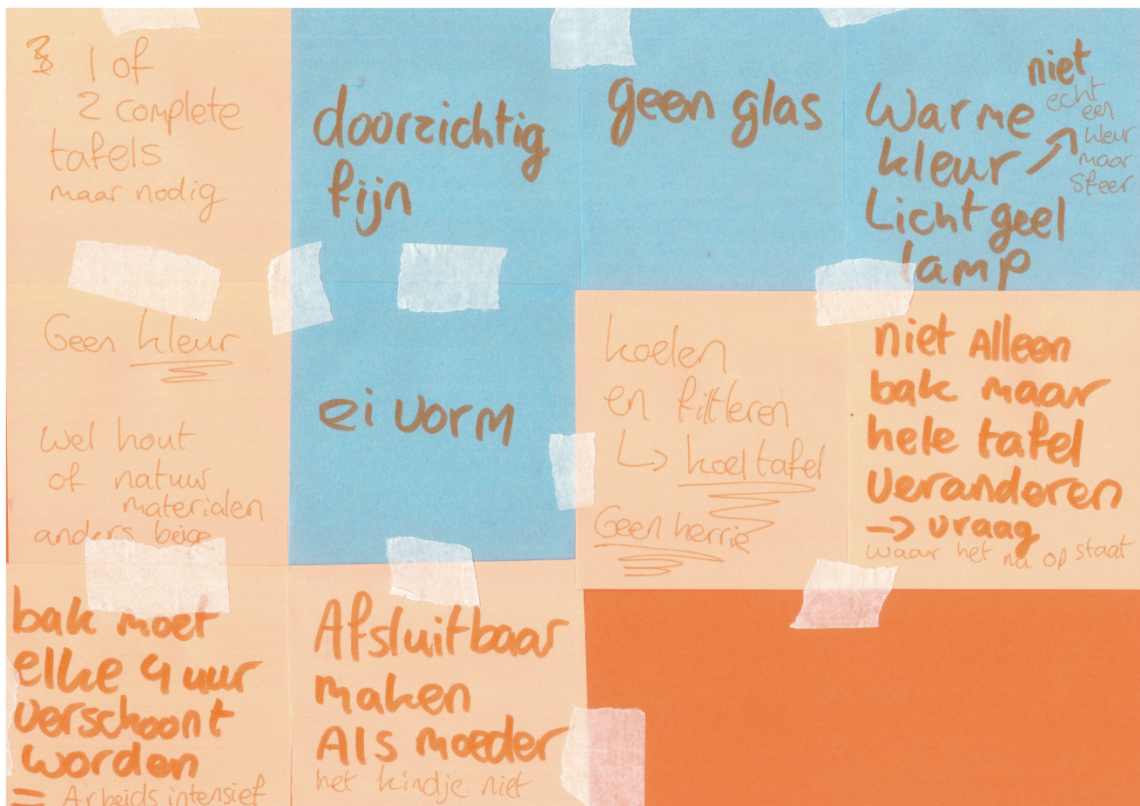 1 of
2 complete
tafels
maar nodig
doorzichtig
fijn
geen glas
Warme
kleur
Licht geel
lamp
niet
echt
een
kleur
maar
sfeer
Geen kleur
wel hout
of natuur
materialen
anders beige
ei vorm
koelen
en filteren
↳ koeltafel
Geen herrie
niet Alleen
bak maar
hele tafel
veranderen
→ vraag
waar het nu op staat
bak moet
elke 4 uur
verschoont
worden
= Arbeids intensief
Afsluitbaar
maken
Als moeder
het kindje niet